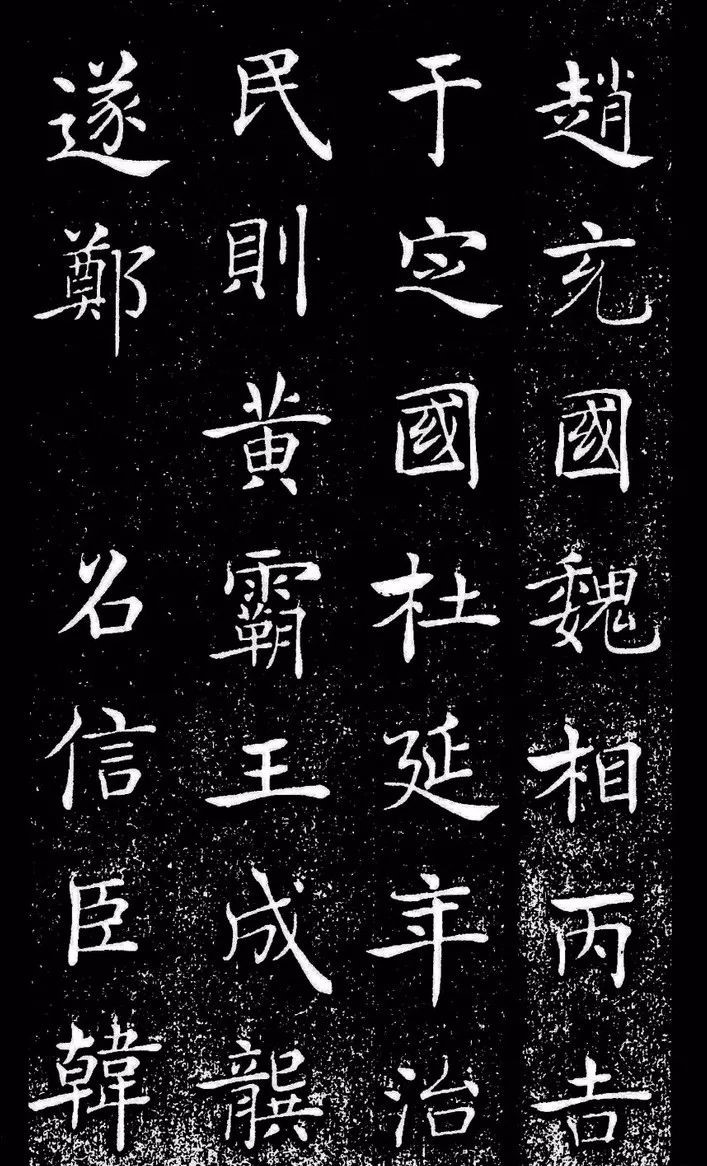 趙充國魏相丙吉
于定國杜延年治
民則黃霸王成龔
遂鄭　召信臣韓